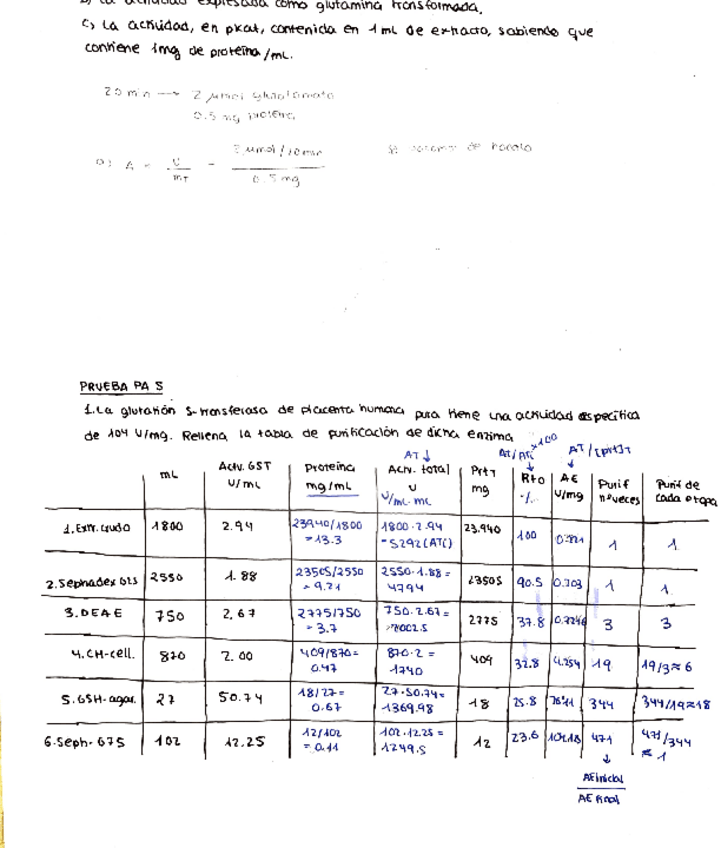 b) La actividad expresada como glutamina transformada.
c) La actividad, en pkat, contenida en 1 mL de extracto, sabiendo que
contiene 1mg de proteína/mL.
20 min → 2 μmol glutamato
0.5 mg proteína
a) A = U/mT =
0.5 mg
PRUEBA PA S
1. La glutatión S-transferasa de placenta humana pura tiene una actividad específica
de 104 U/mg. Rellena la tabla de purificación de dicha enzima
mL Activ. GST U/mL Proteína mg/mL AT↓ Activ. total U U/mL·mL PrtT mg AT/ATi x100 ↓ Rto % AT/[prt]T ↓ AE U/mg Purif nºveces Purif de cada etapa
1. Extr. crudo 1800 2.94 23940/1800 = 13.3 1800·2.94 = 5292 (ATi) 23.940 100 0.221 1 1
2. Sephadex G25 2550 1.88 23505/2550 = 9.21 2550·1.88 = 4794 23505 90.5 0.203 1 1
3. DEAE 750 2.67 2775/750 = 3.7 750·2.67 = 2002.5 2775 37.8 0.7216 3 3
4. CH-cell. 870 2.00 409/870 = 0.47 870·2 = 1740 409 32.8 4.254 19 19/3 ≈ 6
5. GSH-agar. 27 50.74 18/27 = 0.67 27·50.74 = 1369.98 18 25.8 76.11 344 344/19 ≈ 18
6. Seph-G75 102 12.25 12/102 = 0.11 102·12.25 = 1249.5 12 23.6 104.18 471 471/344 ≈ 1
↓
AE inicial
AE final